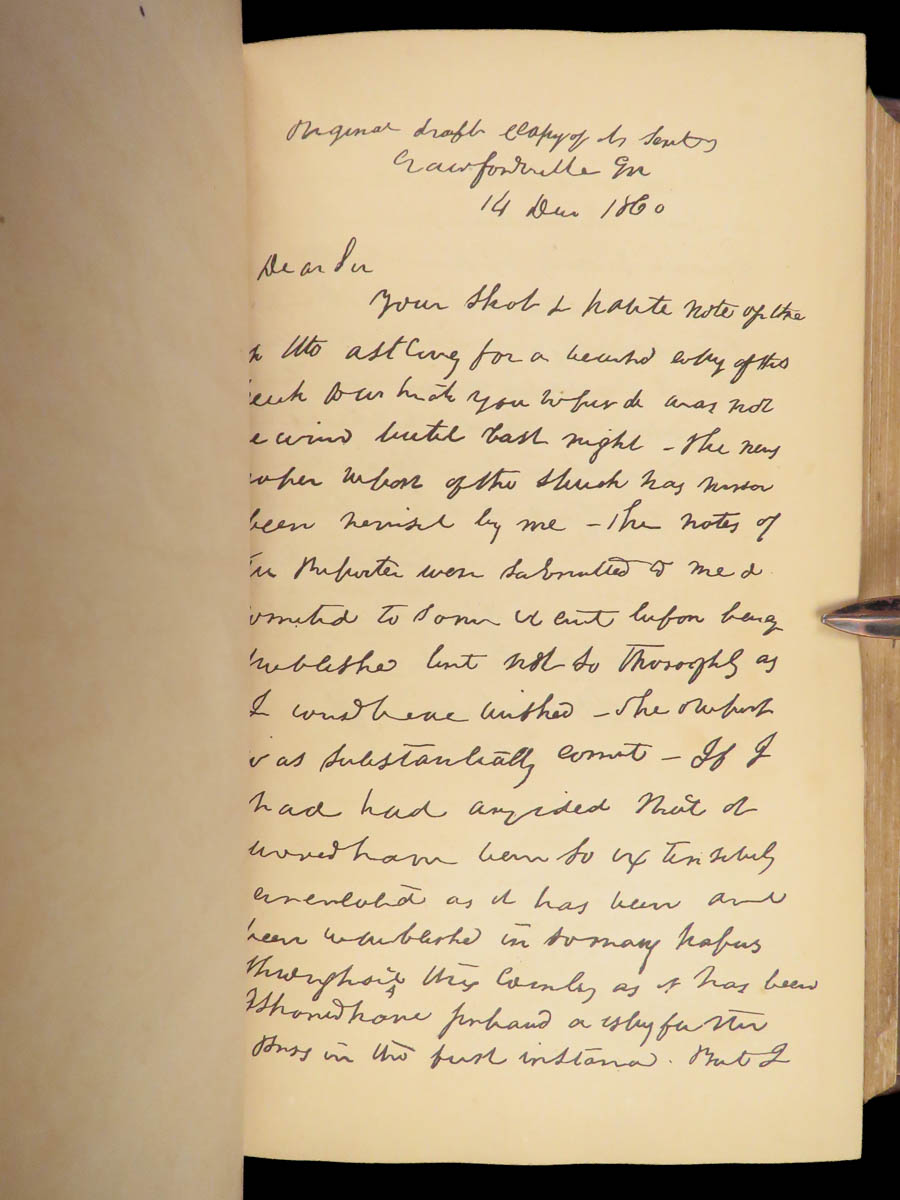 Original draft & copy of it sent
Crawfordville Ga
14 Dec 1860
Dear Sir
Your short & polite note of the
asking for a revised copy of the
speech to which you refer was not
received until last night – The news
paper report of the speech has never
been revised by me – The notes of
the Reporter were submitted to me &
corrected to some extent before being
published but not so thoroughly as
I could have wished – The report
was substantially correct – If I
had had any idea that it
would have been so extensively
circulated as it has been and
been republished in so many papers
throughout the Country as it has been
I should have prepared a copy for the
Press in the first instance. But I